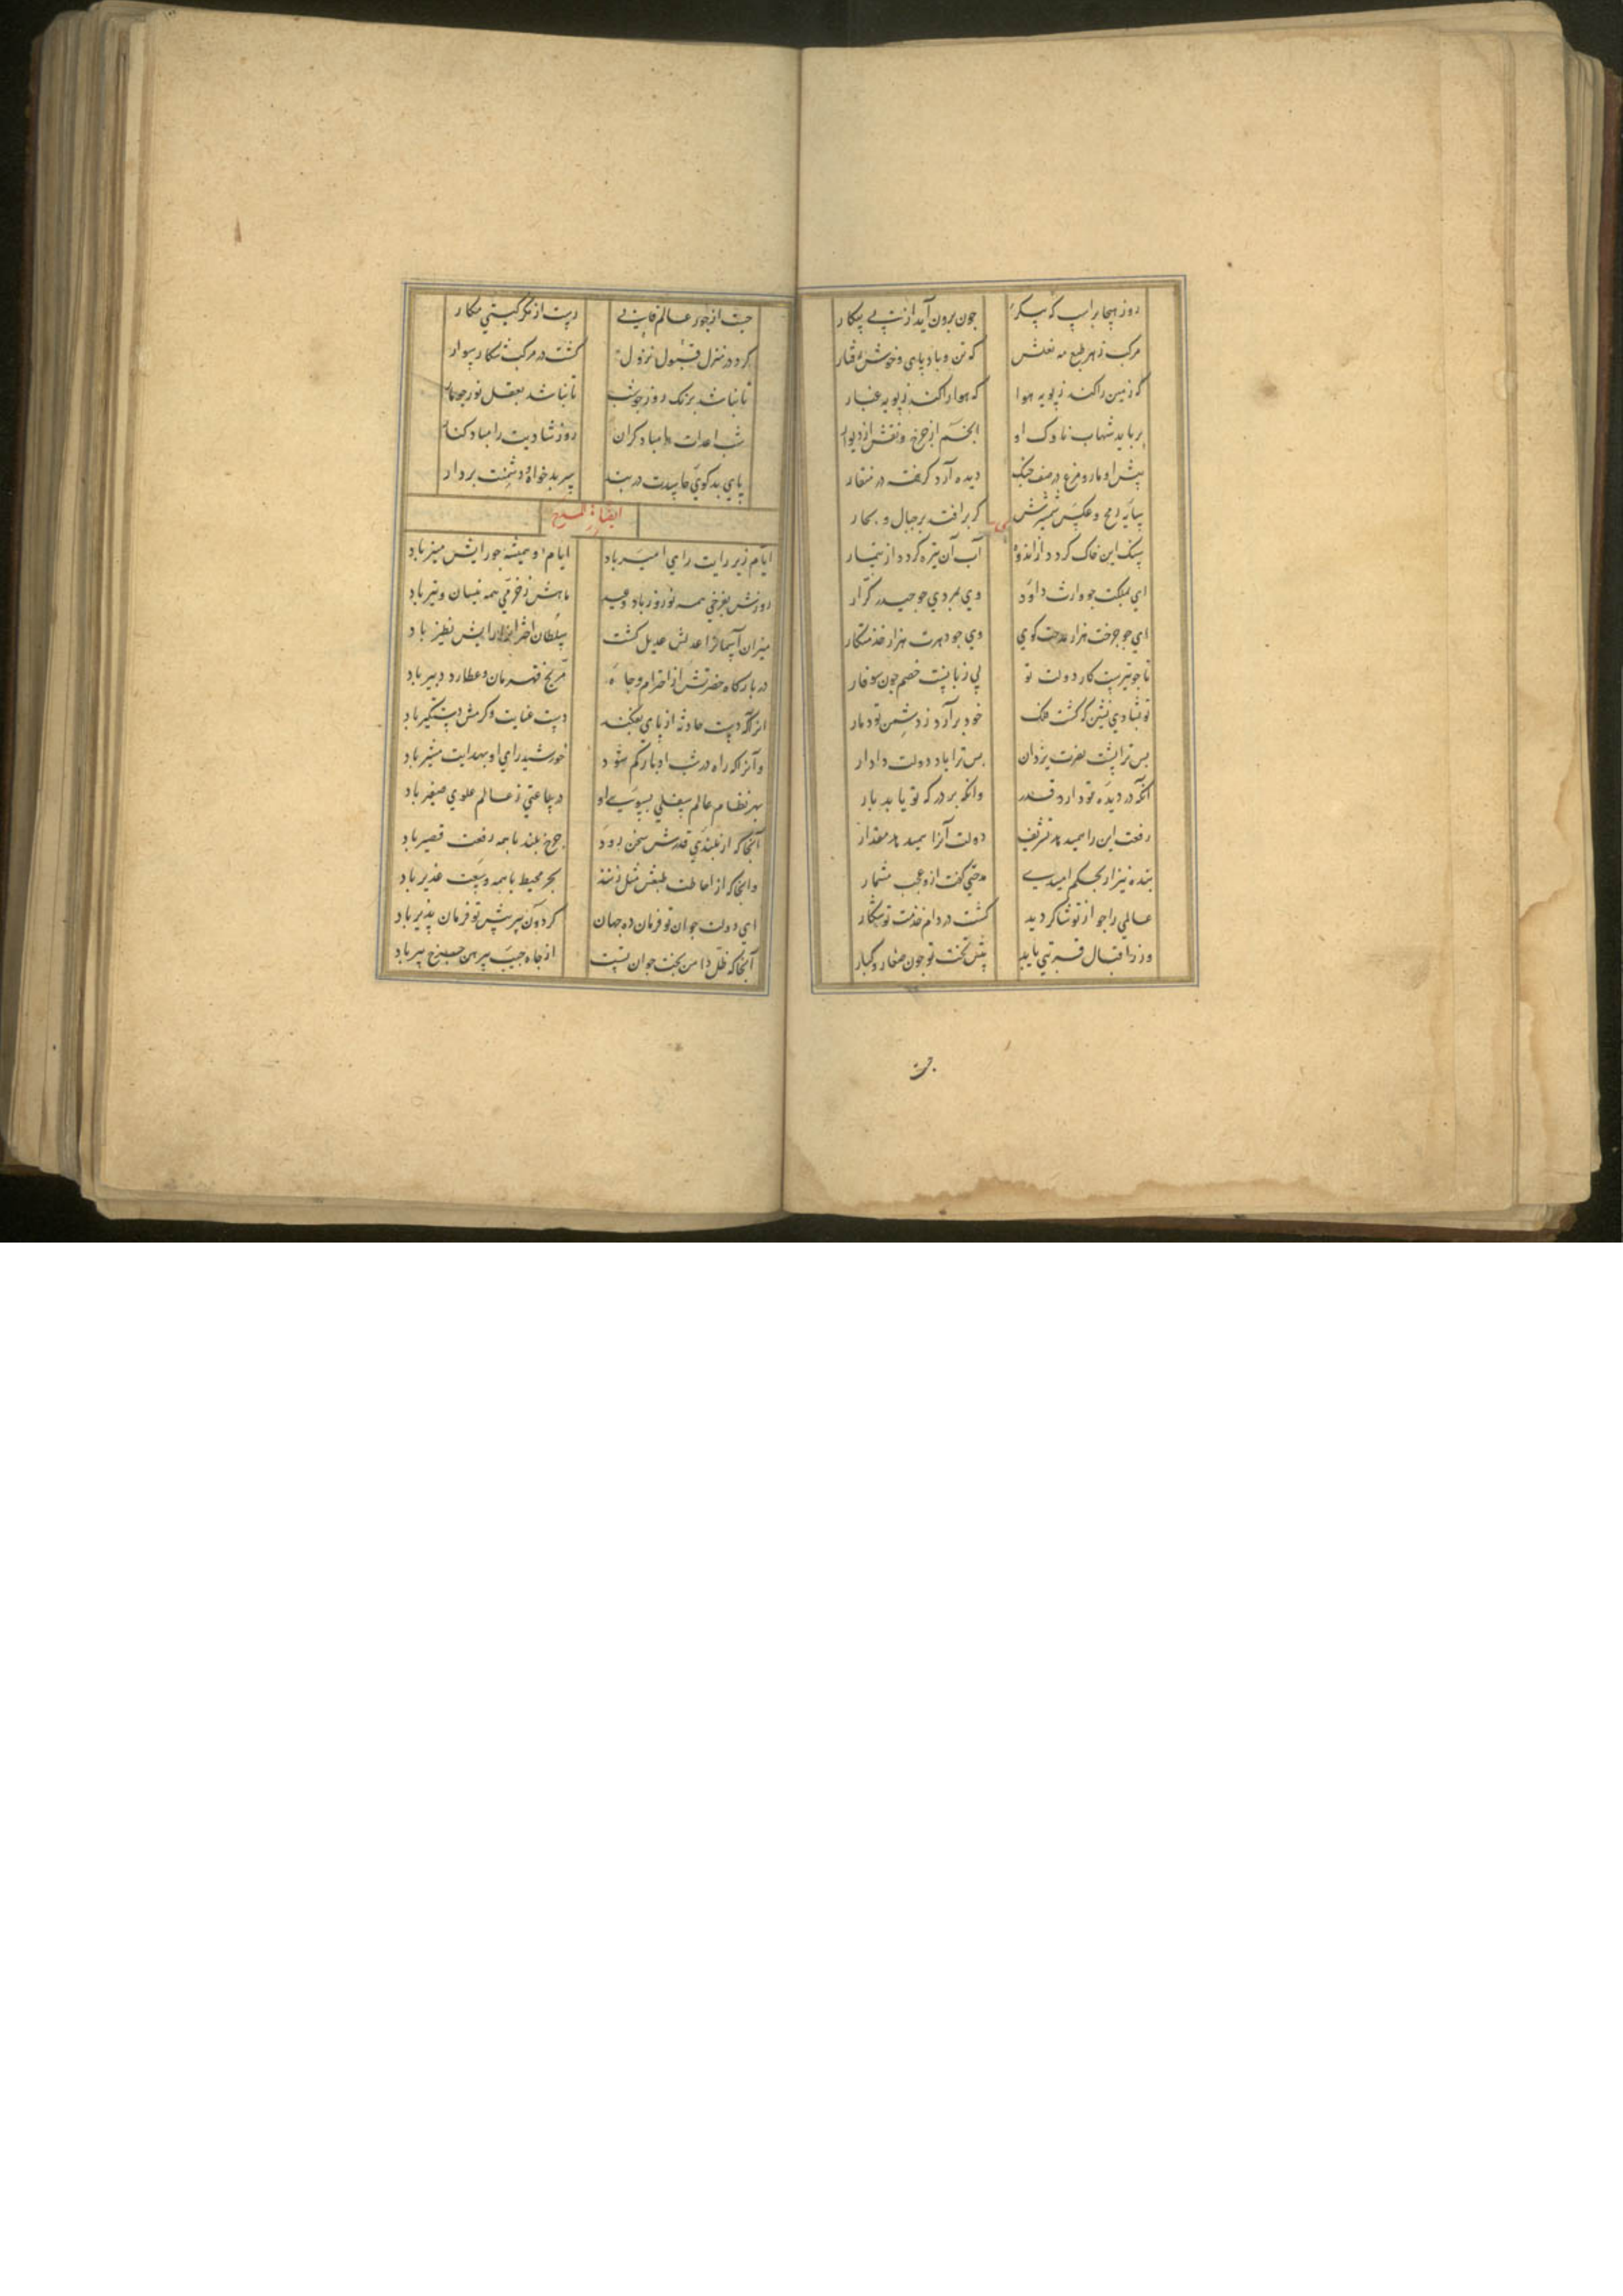 روز هیجا بر اسب که پیکر چون برون آید از پی پیکار
مرکب زهره طبع مه نعلش که تن و باد پای و خوش رفتار
که زمین را کند ز پویه هوا که هوا را کند ز پویه غبار
برباید شهاب ناوک او انجم از چرخ و نقش از دیوار
پیش او مار و مرغ در صف جنگ دیده آرد گرفته در منقار
سایه رمح و عکس شمشیرش گر برافتد بر جبال و بحار
سنک این خاک کردد از اندوه آب آن تیره کردد از تیمار
ای بملکت جو وارث داود وی بمردی جو حیدر کرّار
ای جو جرخت هزار مدحت کوی وی جو دهرت هزار خدمتکار
تا جو تیرست کار دولت تو بی زبانست خصم جون سوفار
تو بشادی نشین که کشت فلک خود برآرد ز دشمن تو دمار
بس ترا پشت نصرت یزدان بس ترا یاد دولت دادار
آنکه در دیده تو دارد قدر وانکه بر درکه تو یابد بار
رفعت این را همی دهد تشریف دولت آنرا همی دهد مقدار
بنده نیز ار بحکم امیدی مدحتی کفت ازو عجب مشمار
عالمی را جو از تو شاکر دید کشت در دام خدمت تو شکار
وز در اقبال قربتی یابد پیش تخت تو جون صغار و کبار
جست
جست از جور عالم فانی رست از مکر کیتی مکار
کرد در منزل قبول نزول کشت در مرکب شکار سوار
تا نباشد برنک روز جو شب تا نباشد بعقل نور جو نار
شب اعدات را مباد کران روز شادیت را مباد کنار
پای بدکوی حاسدت در بند سر بدخواه دشمنت بر دار
ایضا فی المدح
ایام زیر رایت رای امیر باد ایام او همیشه جو رایش منیر باد
روزش بفرخی همه نوروز باد و عید ماهش ز خرمی همه نیسان و تیر باد
میزان آسمانرا عدلش عدیل کشت سلطان اختران را رایش نظیر باد
در بارکاه حضرتش از احترام و جاه مریخ قهرمان و عطارد دبیر باد
انرا که دست حادثه از پای بفکند دست عنایت و کرمش دستکیر باد
وانرا که راه در شب ادبار کم شود خورشید رای او بهدایت مشیر باد
بهر نظام عالم سفلی بسوی او در ساعتی ز عالم علوی صفیر باد
آنجا که از بلندی قدرش سخن رود چرخ بلند با همه رفعت قصیر باد
وانجا که از احاطت طبعش مثل زنند بحر محیط با همه وسعت غدیر باد
ای دولت جوان تو فرمان ده جهان کردون پیر پیش تو فرمان پذیر باد
آنجا که ظل دامن بخت جوان تست از جاه جیب پیرهن چرخ پیر باد